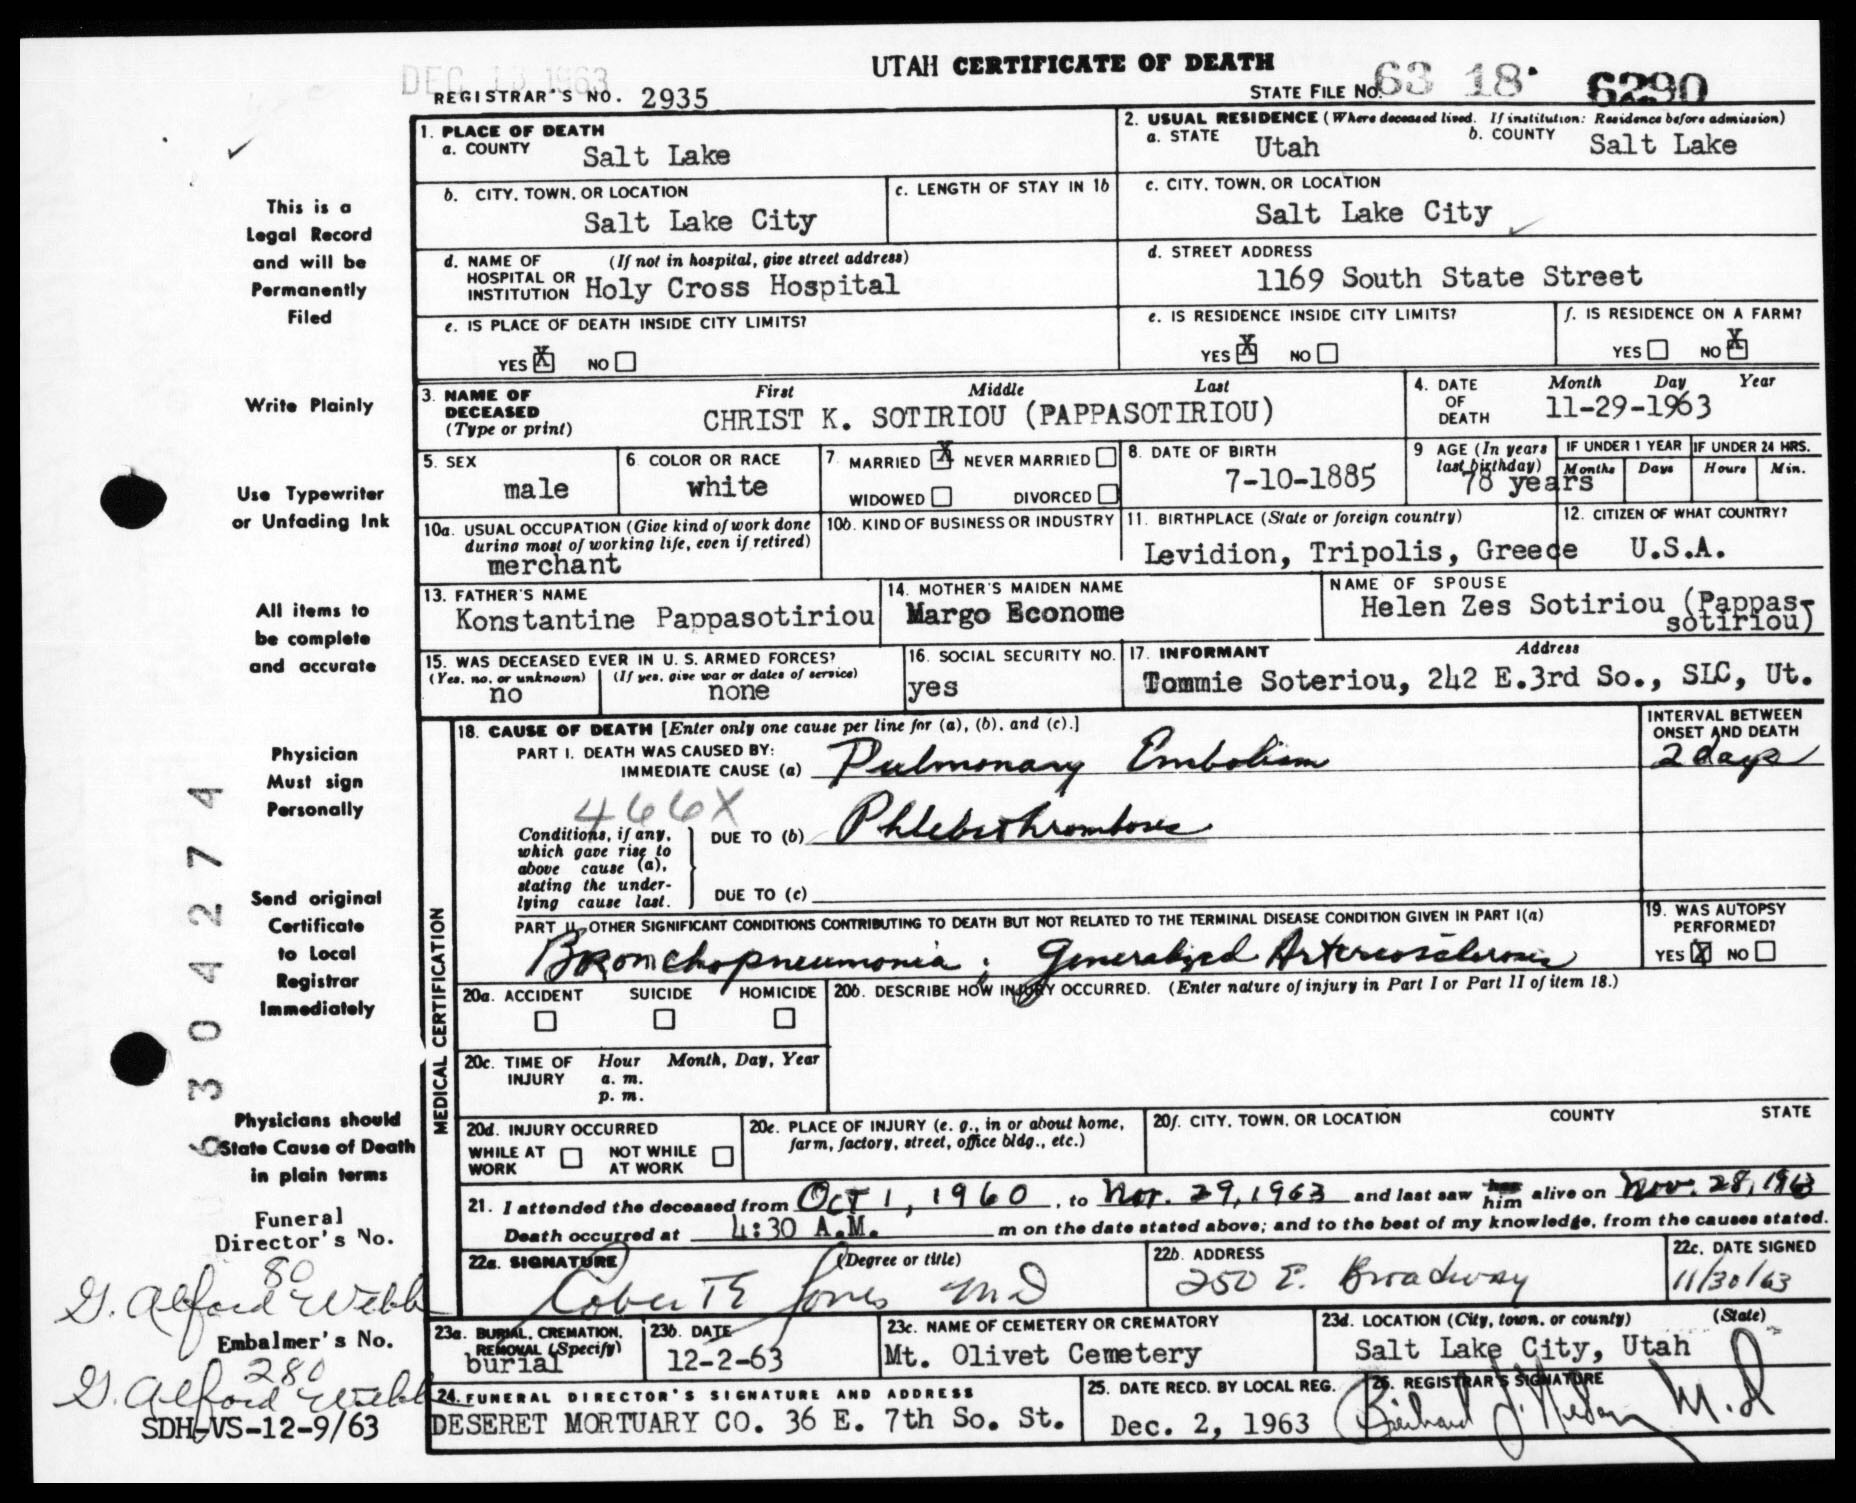 UTAH CERTIFICATE OF DEATH
DEC 13 1963
REGISTRAR'S NO. 2935
STATE FILE NO. 63 18 6290
1. PLACE OF DEATH
a. COUNTY Salt Lake
2. USUAL RESIDENCE (Where deceased lived. If institution: Residence before admission)
a. STATE Utah b. COUNTY Salt Lake
b. CITY, TOWN, OR LOCATION
Salt Lake City
c. LENGTH OF STAY IN 1b
c. CITY, TOWN, OR LOCATION
Salt Lake City
d. NAME OF HOSPITAL OR INSTITUTION (If not in hospital, give street address)
Holy Cross Hospital
d. STREET ADDRESS
1169 South State Street
e. IS PLACE OF DEATH INSIDE CITY LIMITS?
YES X NO
e. IS RESIDENCE INSIDE CITY LIMITS?
YES X NO
f. IS RESIDENCE ON A FARM?
YES NO X
3. NAME OF DECEASED (Type or print)
First Middle Last
CHRIST K. SOTIRIOU (PAPPASOTIRIOU)
4. DATE OF DEATH
Month Day Year
11-29-1963
5. SEX
male
6. COLOR OR RACE
white
7. MARRIED X NEVER MARRIED
WIDOWED DIVORCED
8. DATE OF BIRTH
7-10-1885
9 AGE (In years last birthday)
78 years
IF UNDER 1 YEAR
Months Days
IF UNDER 24 HRS.
Hours Min.
10a. USUAL OCCUPATION (Give kind of work done during most of working life, even if retired)
merchant
10b. KIND OF BUSINESS OR INDUSTRY
11. BIRTHPLACE (State or foreign country)
Levidion, Tripolis, Greece
12. CITIZEN OF WHAT COUNTRY?
U.S.A.
13. FATHER'S NAME
Konstantine Pappasotiriou
14. MOTHER'S MAIDEN NAME
Margo Econome
NAME OF SPOUSE
Helen Zes Sotiriou (Pappas-
sotiriou)
15. WAS DECEASED EVER IN U. S. ARMED FORCES?
(Yes, no, or unknown) (If yes, give war or dates of service)
no none
16. SOCIAL SECURITY NO.
yes
17. INFORMANT Address
Tommie Soteriou, 242 E.3rd So., SLC, Ut.
MEDICAL CERTIFICATION
18. CAUSE OF DEATH [Enter only one cause per line for (a), (b), and (c).]
INTERVAL BETWEEN ONSET AND DEATH
PART I. DEATH WAS CAUSED BY:
IMMEDIATE CAUSE (a) Pulmonary Embolism 2 days
466X
Conditions, if any, which gave rise to above cause (a), stating the underlying cause last.
DUE TO (b) Phlebothrombosis
DUE TO (c)
PART II. OTHER SIGNIFICANT CONDITIONS CONTRIBUTING TO DEATH BUT NOT RELATED TO THE TERMINAL DISEASE CONDITION GIVEN IN PART I(a)
Bronchopneumonia; Generalized Arteriosclerosis
19. WAS AUTOPSY PERFORMED?
YES X NO
20a. ACCIDENT SUICIDE HOMICIDE
20b. DESCRIBE HOW INJURY OCCURRED. (Enter nature of injury in Part I or Part II of item 18.)
20c. TIME OF INJURY Hour Month, Day, Year
a. m.
p. m.
20d. INJURY OCCURRED
WHILE AT WORK NOT WHILE AT WORK
20e. PLACE OF INJURY (e. g., in or about home, farm, factory, street, office bldg., etc.)
20f. CITY, TOWN, OR LOCATION COUNTY STATE
21. I attended the deceased from Oct 1, 1960, to Nov. 29, 1963 and last saw him alive on Nov. 28, 1963
Death occurred at 4:30 A.M. m on the date stated above; and to the best of my knowledge, from the causes stated.
22a. SIGNATURE (Degree or title)
Robert E Jones MD
22b. ADDRESS
250 E. Broadway
22c. DATE SIGNED
11/30/63
23a. BURIAL, CREMATION, REMOVAL (Specify)
burial
23b. DATE
12-2-63
23c. NAME OF CEMETERY OR CREMATORY
Mt. Olivet Cemetery
23d. LOCATION (City, town, or county) (State)
Salt Lake City, Utah
24. FUNERAL DIRECTOR'S SIGNATURE AND ADDRESS
DESERET MORTUARY CO. 36 E. 7th So. St.
25. DATE RECD. BY LOCAL REG.
Dec. 2, 1963
26. REGISTRAR'S SIGNATURE
M.D
This is a
Legal Record
and will be
Permanently
Filed
Write Plainly
Use Typewriter
or Unfading Ink
All items to
be complete
and accurate
Physician
Must sign
Personally
Send original
Certificate
to Local
Registrar
Immediately
Physicians should
State Cause of Death
in plain terms
Funeral
Director's No.
80
G. Alford Webb
Embalmer's No.
280
G. Alford Webb
SDH-VS-12-9/63
6304274